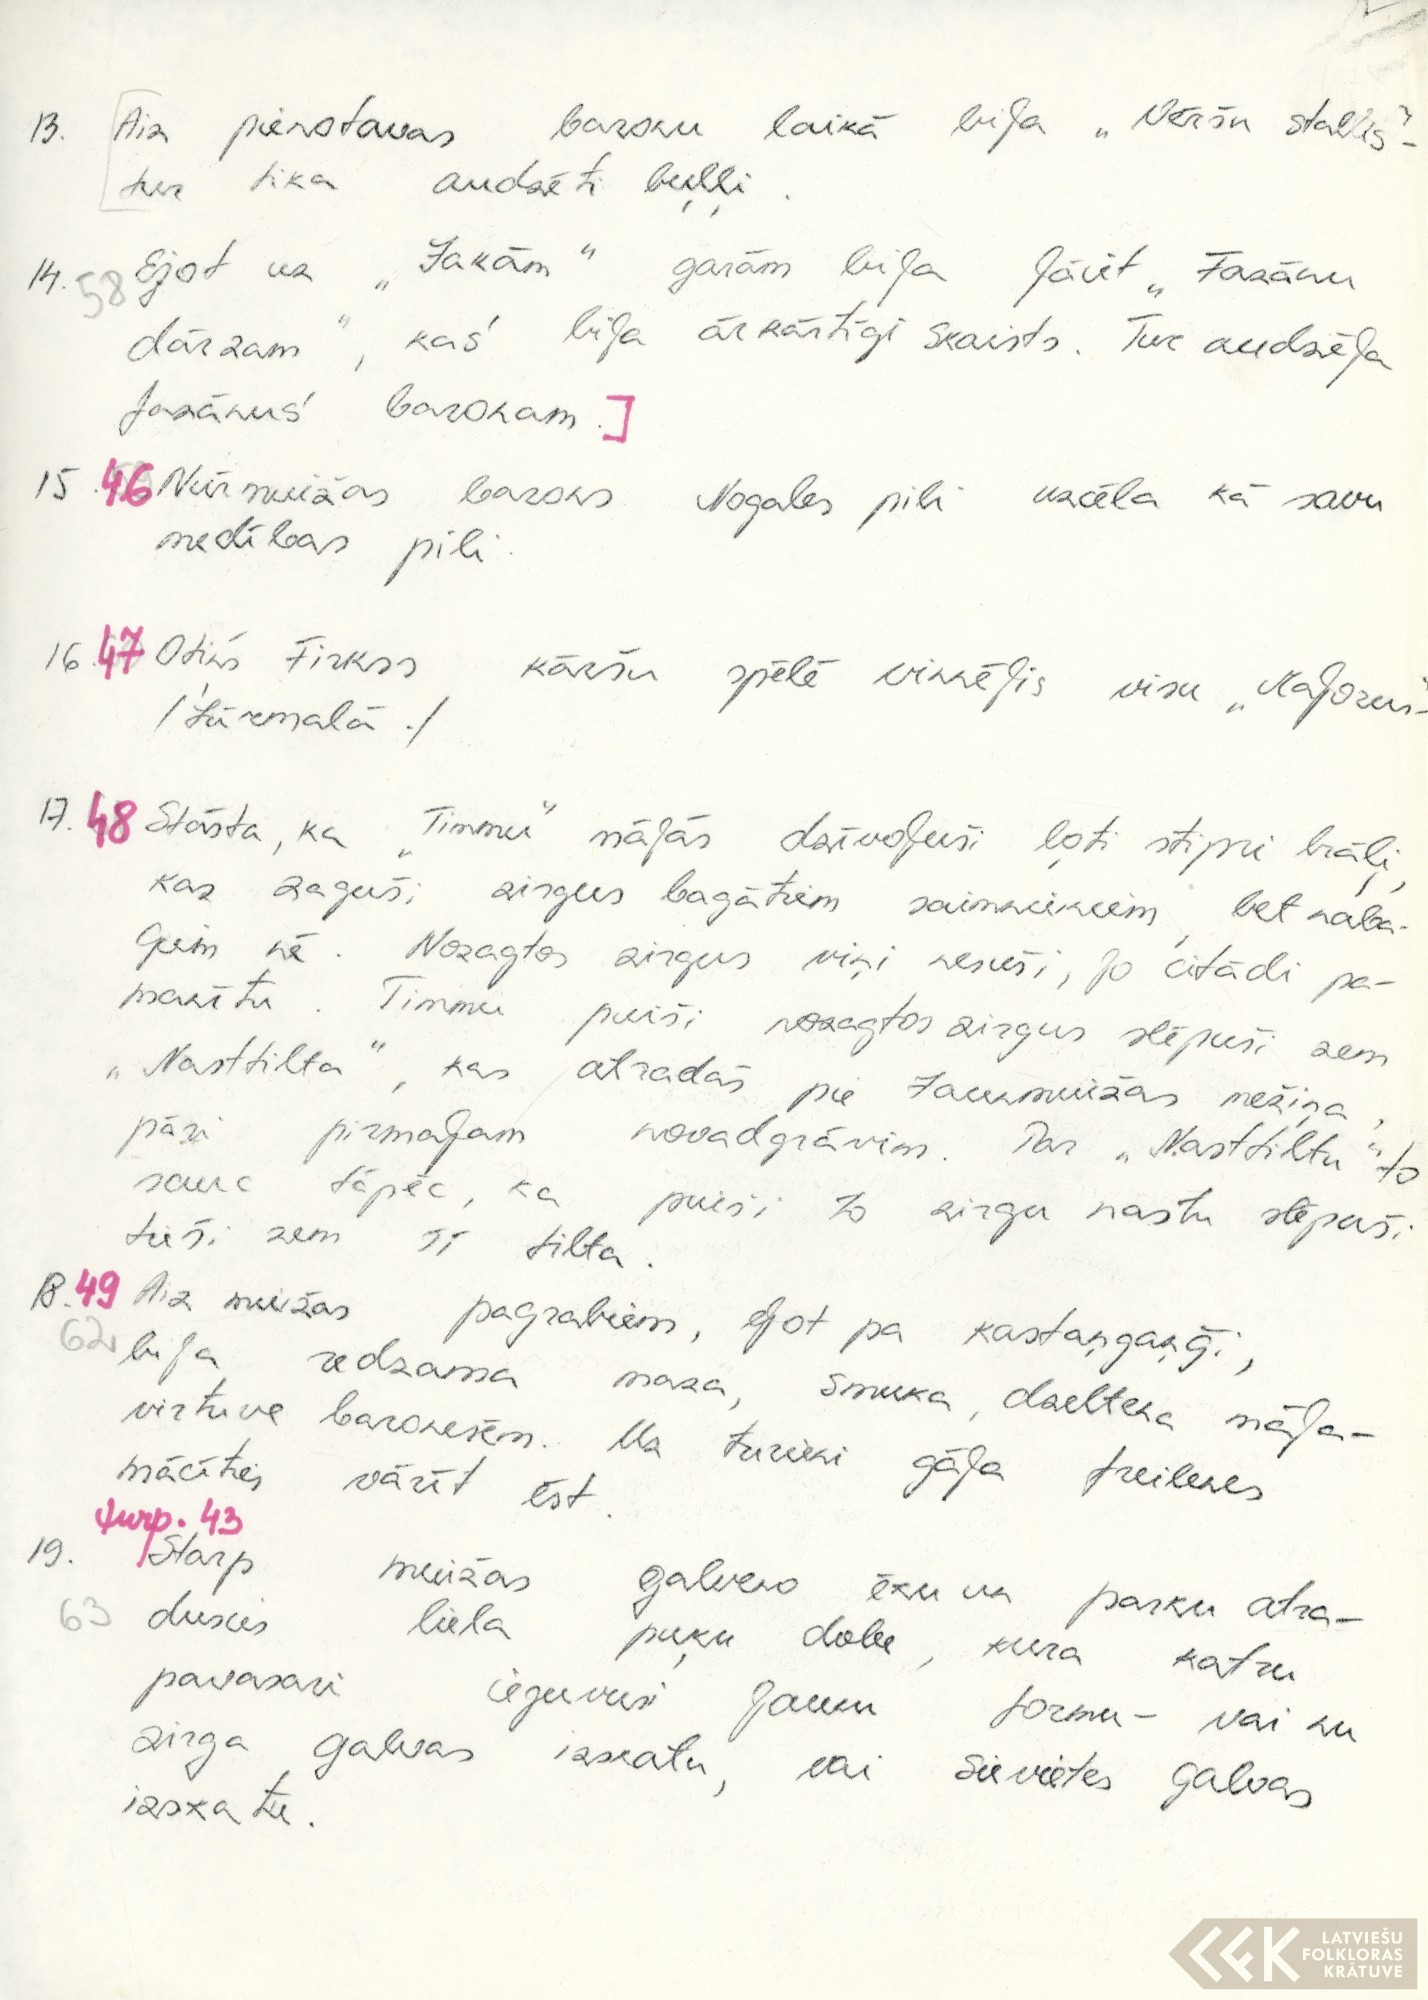 13. Aiz pienotavas baronu laikā bija „Vēršu stallis"-
tur tika audzēti buļļi.
14. 58 Ejot uz „Zakām" garām bija jāiet „Fazānu
dārzam", kas bija ārkārtīgi skaists. Tur audzēja
fazānus baronam.]
15. 46 Nurmuižas barons Nogales pili uzcēla kā savu
medības pili.
16. 47 Otiņš Firkss kāršu spēlē vinnējis visu „Majoruš-
/Jūrmalā./
17. 48 Stāsta, ka „Timmu" mājās dzīvojuši ļoti stipri brāļi,
kas zaguši zirgus bagātiem saimniekiem, bet naba-
giem nē. Nozagtos zirgus viņi nesuši, jo citādi pa-
manītu. Timmu puiši nozagtos zirgus slēpuši zem
„Nasttilta", kas atradās pie Jaunmuižas mežiņa,
pāri pirmajam novadgrāvim. Par „Nasttiltu" to
sauc tāpēc, ka puiši to zirgu nastu slēpuši
tieši zem šī tilta.
18. 49 Aiz muižas pagrabiem, ejot pa kastaņgaņģi,
62 bija redzama maza, smuka, dzeltena māja-
virtuve baronesēm. Uz turieni gāja freilenes
mācīties vārīt ēst.
turp. 43
19. Starp muižas galveno ēku un parku atra-
63 dusies liela puķu dobe, kura katru
pavasari ieguvusi jaunu formu- vai nu
zirga galvas izskatu, vai sievietes galvas
izskatu.
LATVIEŠU
FOLKLORAS
KRĀTUVE